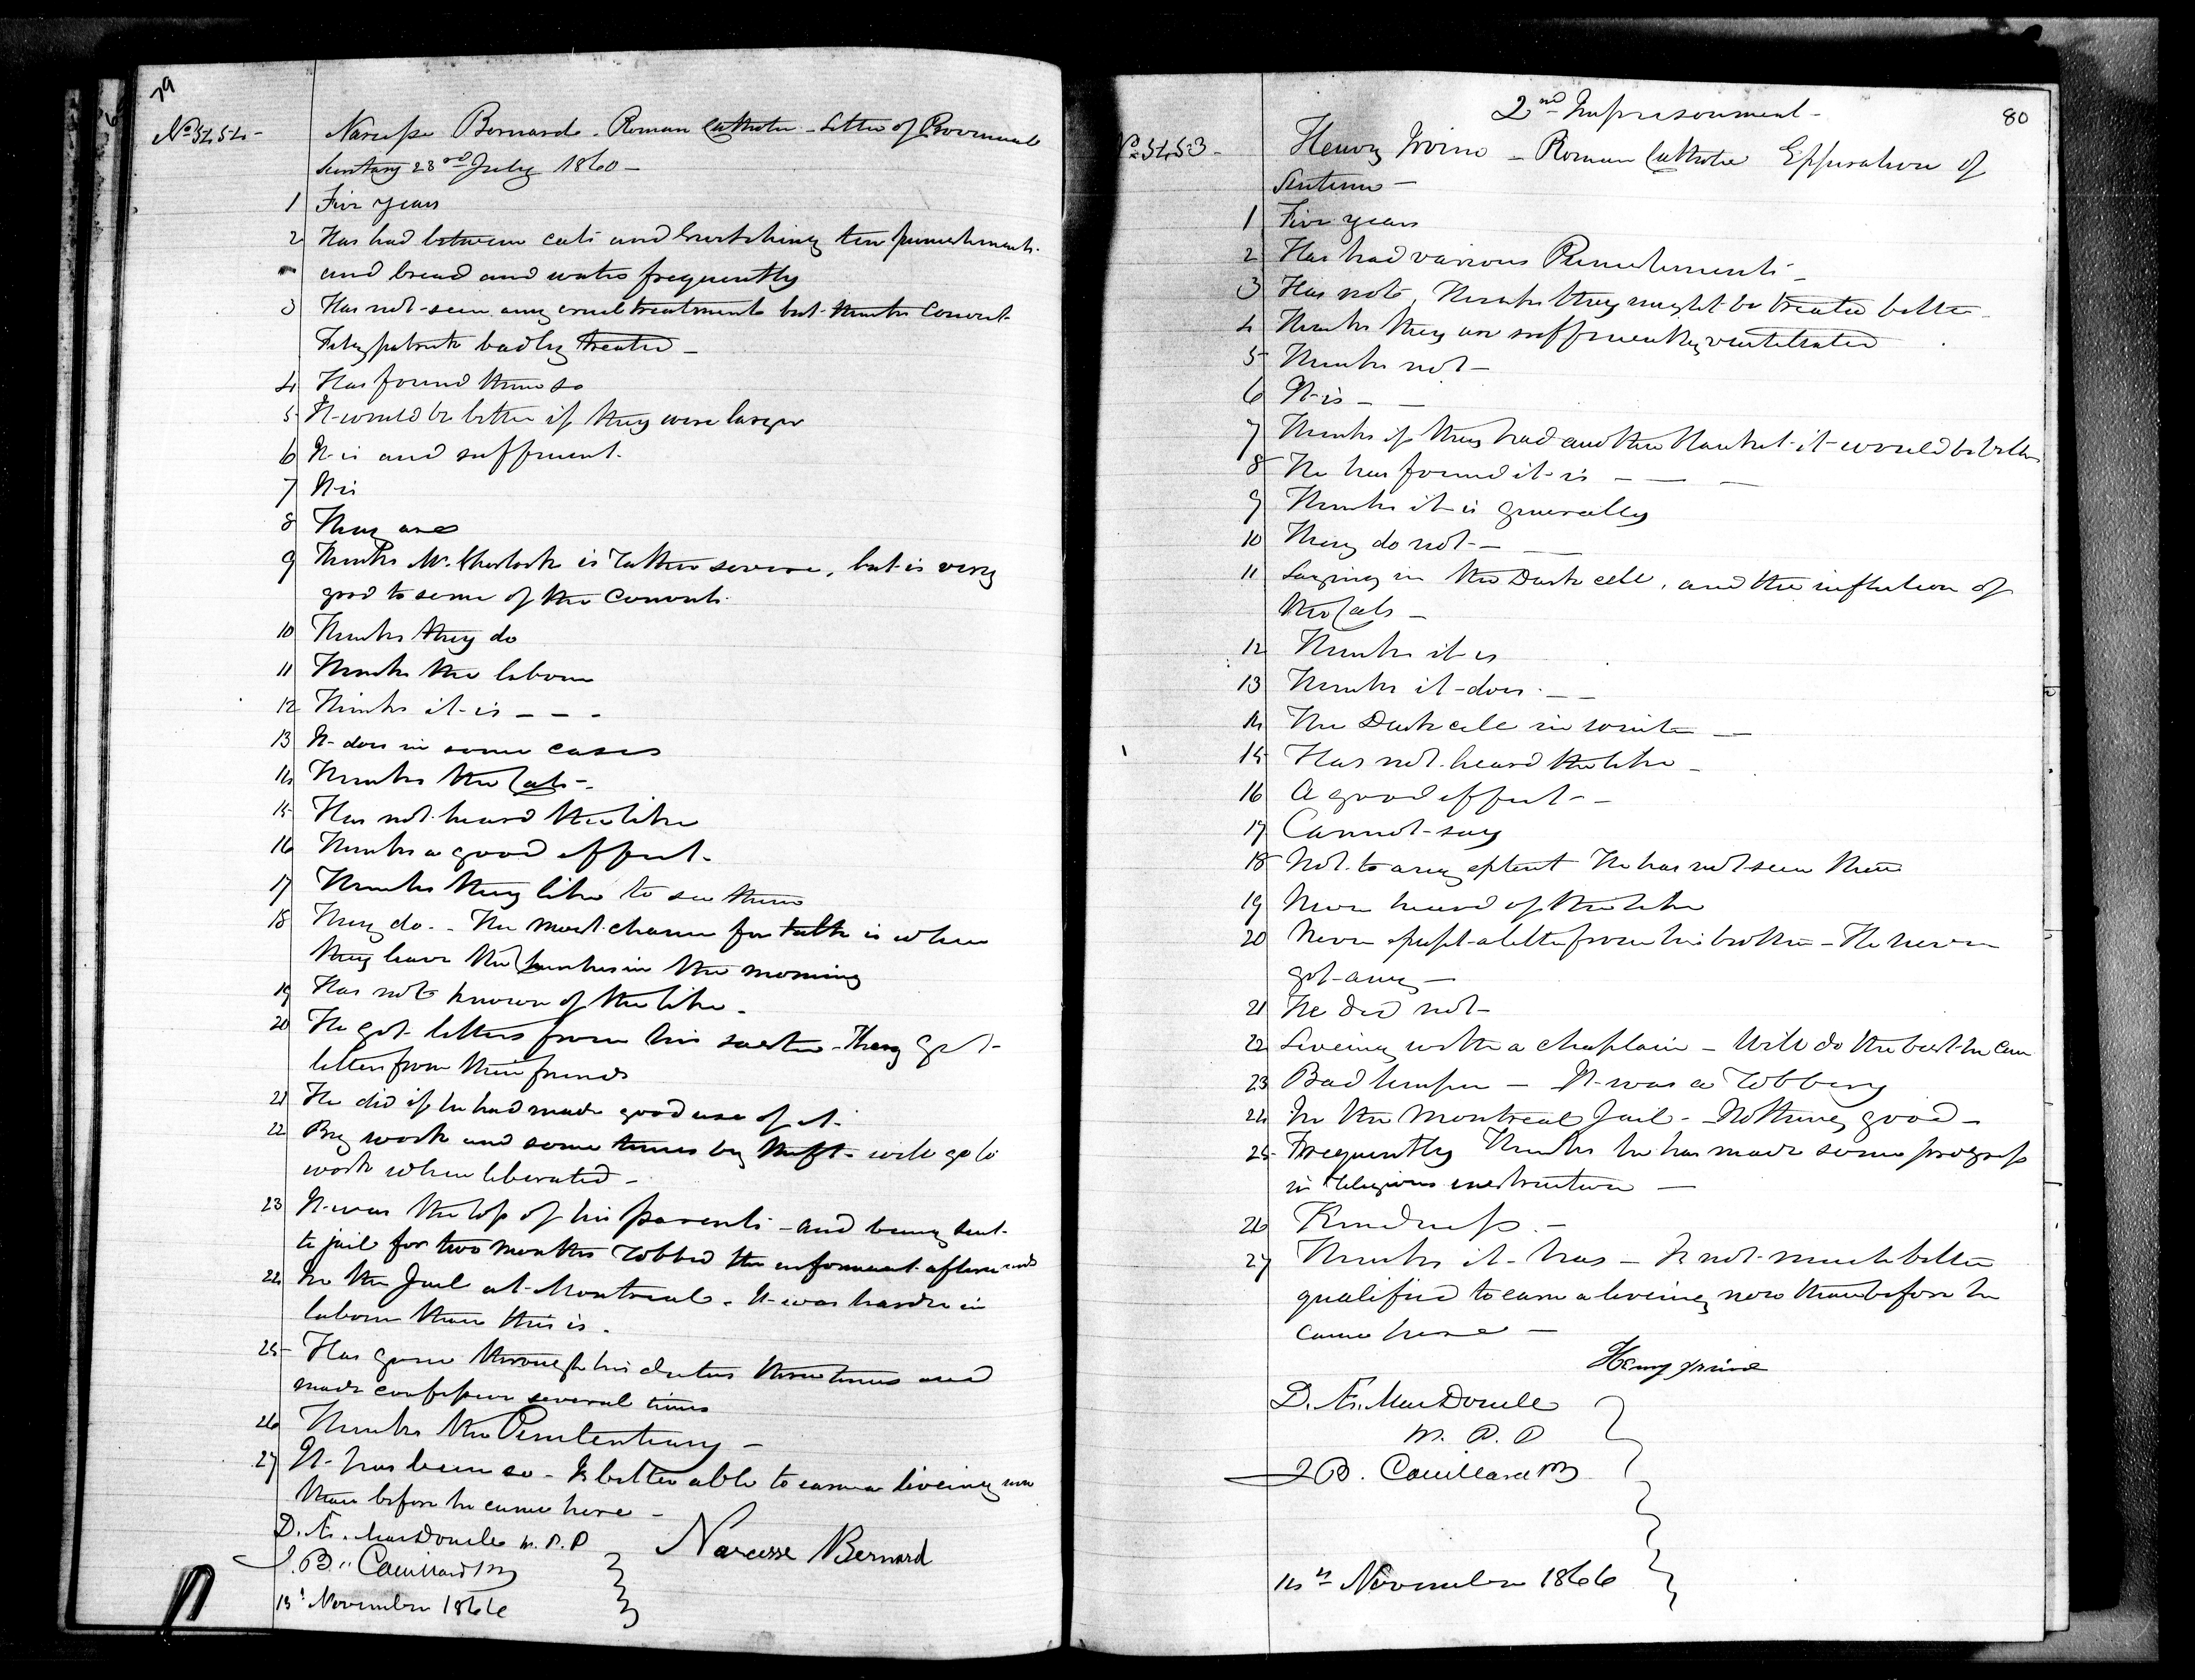 79
No 5454 - Narcisse Bernard - Roman Catholic - Letter of Provincial
Secretary 23rd July 1860 -
1 Five years
2 Has had between cats and birching ten punishments
and bread and water frequently
3 Has not seen any cruel treatment but thinks Convict
Fitzpatrick badly treated -
4 Has found them so
5 It would be better if they were larger
6 It is and sufficient.
7 It is
8 They are
9 Thinks Mr. Sherlock is rather severe, but is very
good to some of the Convicts
10 Thinks they do
11 Thinks the labour
12 Thinks it is - - -
13 It does in some cases
14 Thinks the Cats -.
15 Has not heard the like
16 Thinks a good effect.
17 Thinks they like to see them
18 They do - - The most chance for talk is when
they leave the in the morning
19 Has not known of the like -
20 He got letters from his sister - They get
letters from their friends
21 He did if he had made good use of it.
22 By work and some times by theft - will go to
work when liberated -
23 It was the loss of his parents - and being sent
to jail for two months robbed the informant afterwards
24 In the Jail at Montreal - It was harder in
labour than this is.
25 Has gone through his duties three times and
made confession several times
26 Thinks the Penitentiary -
27 It has been so - Is better able to earn a liveing now
than before he came here -
D. Æ. MacDonell W. P. P Narcesse Bernard
J. B. Couillard
13th November 1866
2nd Imprisonment - 80
No 5453 - Henry Irvine - Roman Catholic Expiration of
Sentence -
1 Five years
2 Has had various Punishments -
3 Has not, Thinks they might be treated better -
4 Thinks they are sufficiently ventilated
5 Thinks not -
6 It is - -
7 Thinks if they had another blanket it would be better
8 He has found it is - - -
9 Thinks it is generally
10 They do not - -
11 Laying in the Dark cell, and the infliction of
the Cats -
12 Thinks it is
13 Thinks it does - -
14 The Dark cell in winter -
15 Has not heard the like -
16 A good effect - -
17 Cannot say
18 Not to any extent He has not seen them
19 Never heard of the like
20 Never except a letter from his brother - He never
got any -
21 He did not -
22 Liveing with a chaplain - Will do the best he can
23 Bad temper - It was a robbery
24 In the Montreal Jail - Nothing good -
25 Frequently Thinks he has made some progress
in religious instruction -
26 Kindness. -
27 Thinks it has - Is not much better
qualified to earn a liveing now than before he
came here -
Henry Irvine
D. Æ. MacDonell
W. P. P
J B. Couillard
14th November 1866